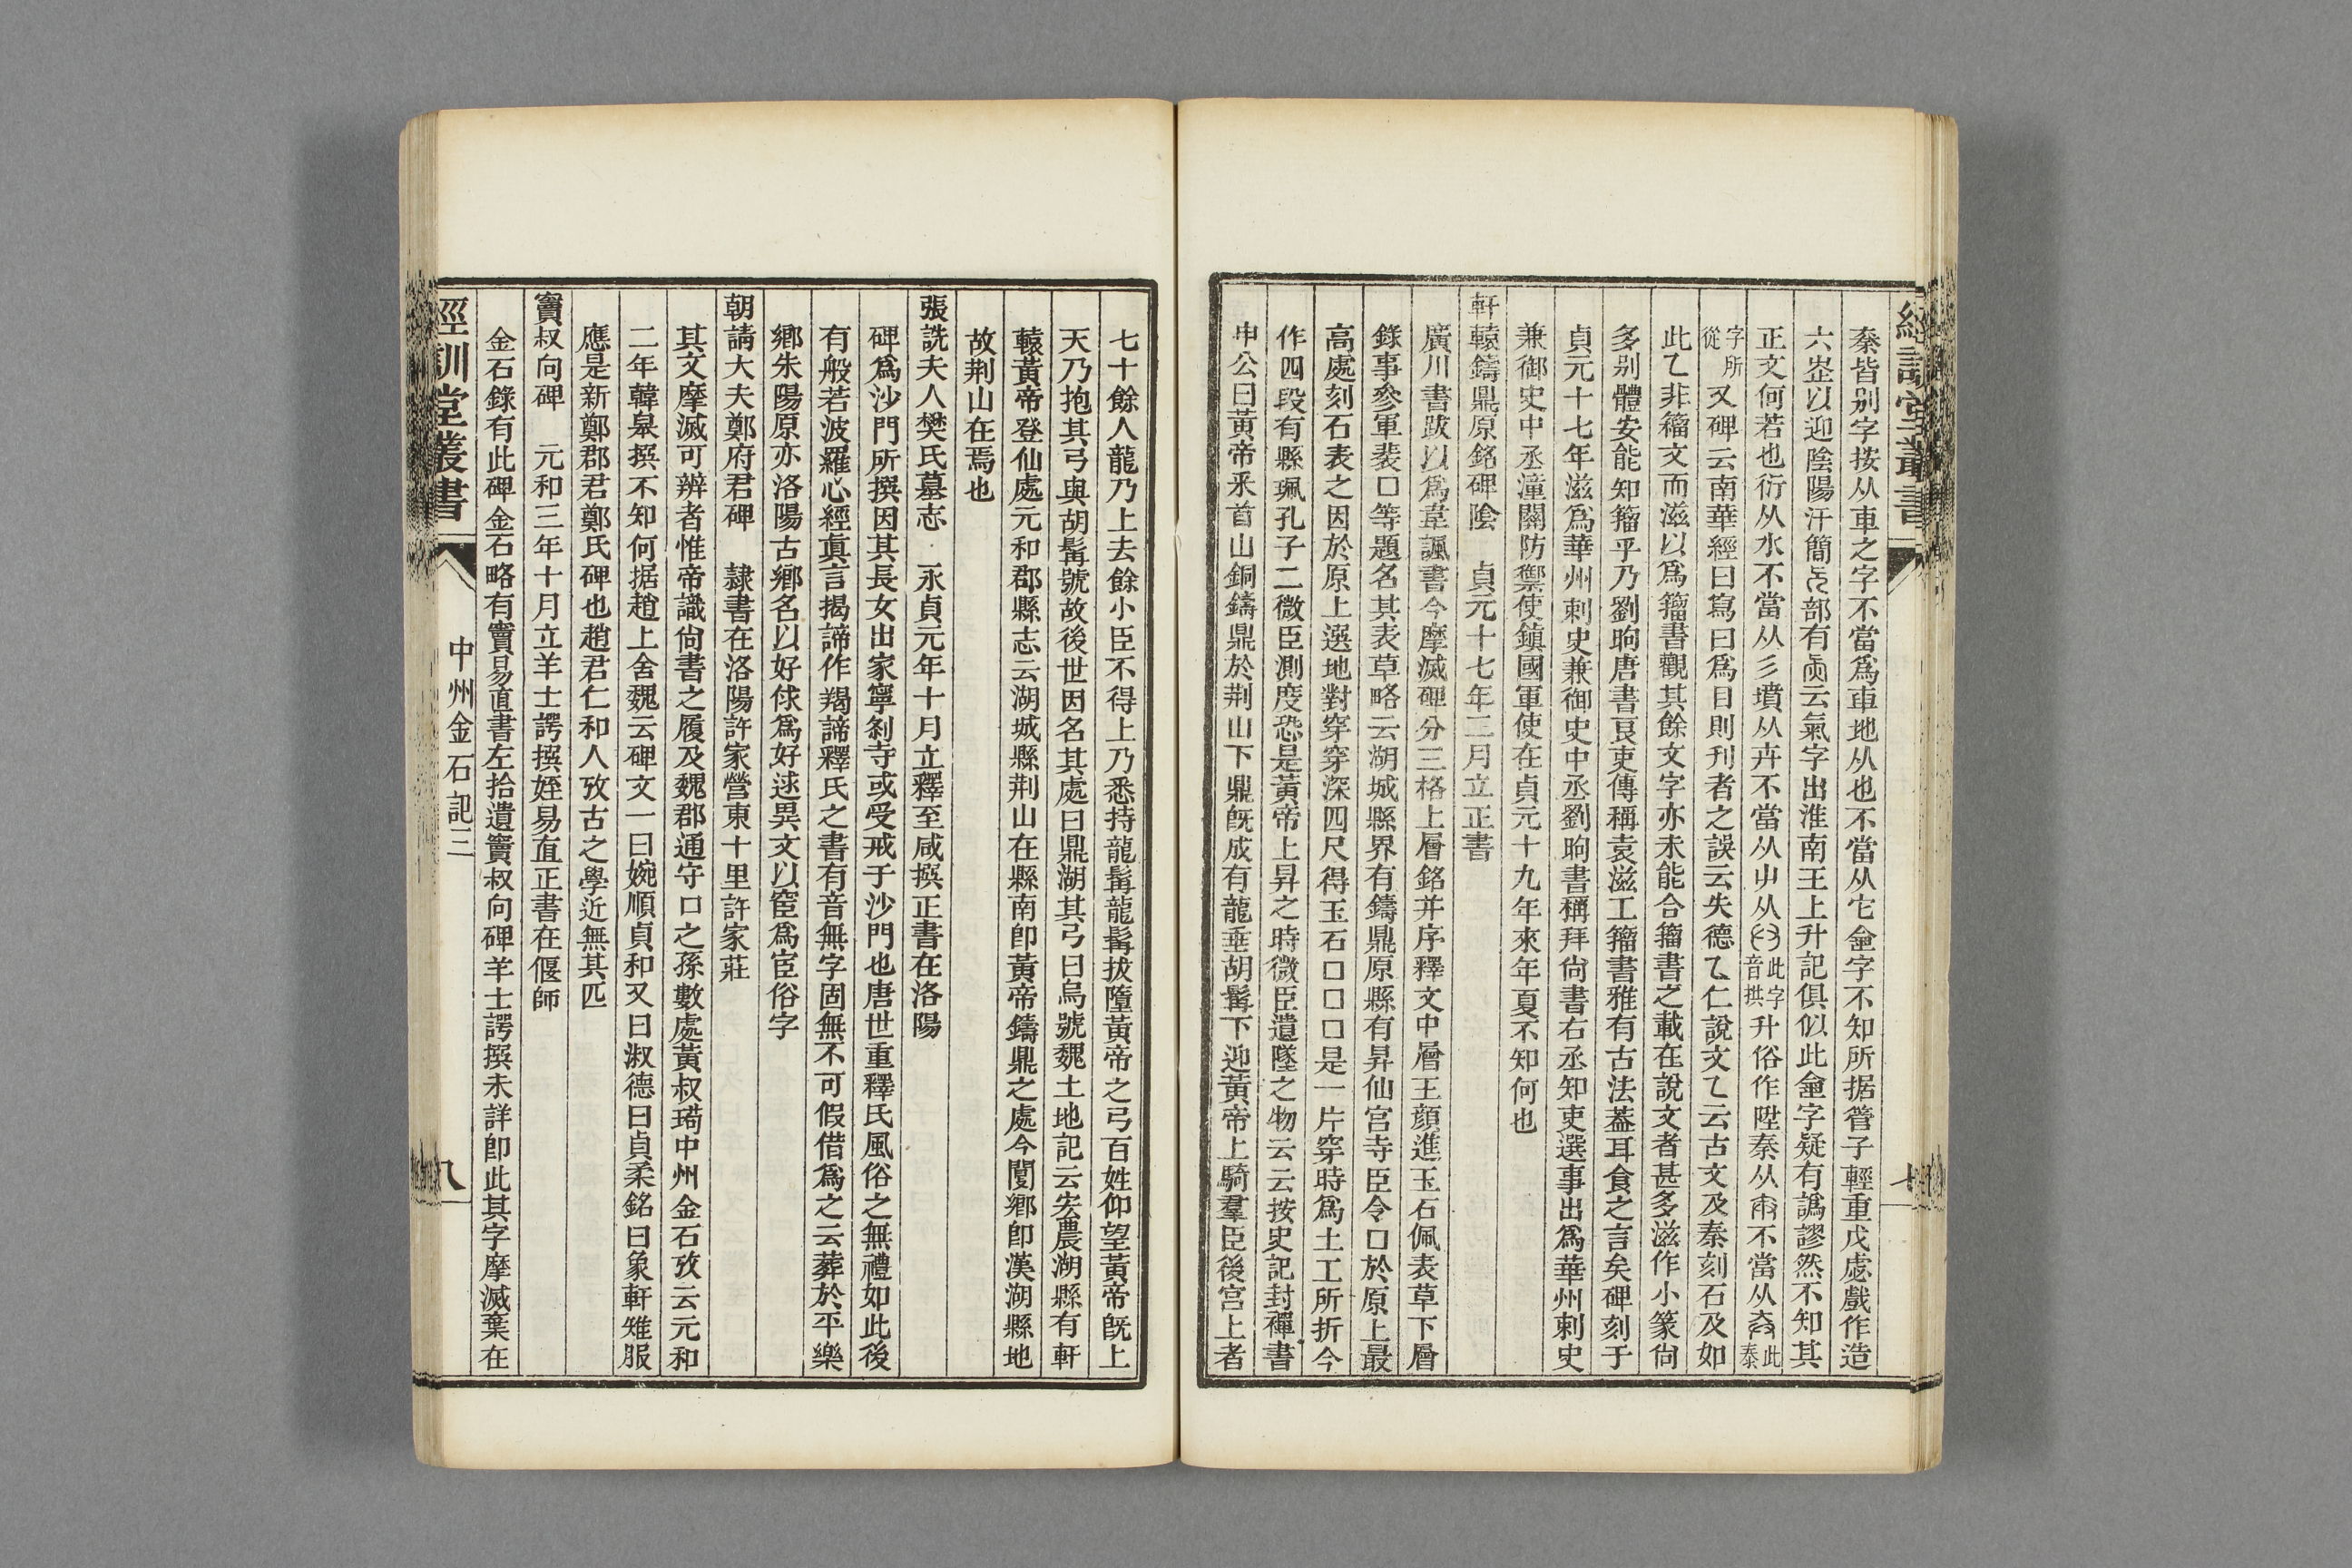 經訓堂叢書
七
秦皆别字按从車之字不當爲車地从也不當从它侖字不知所据管子輕重戊虙戲作造
六峜以迎陰陽汗簡部有云氣字出淮南王上升記俱似此侖字疑有譌謬然不知其
正文何若也衍从水不當从彡墳从卉不當从屮从此字音拱升俗作陞秦从不當从此泰
字所從又碑云南華經曰寫曰爲日則刋者之誤云失德乁仁說文乁云古文及秦刻石及如
此乁非籀文而滋以爲籀書觀其餘文字亦未能合籀書之載在說文者甚多滋作小篆尙
多别體安能知籀乎乃劉昫唐書良吏傳稱袁滋工籀書雅有古法葢耳食之言矣碑刻于
貞元十七年滋爲華州刺史兼御史中丞劉昫書稱拜尙書右丞知吏選事出爲華州刺史
兼御史中丞潼關防禦使鎮國軍使在貞元十九年來年夏不知何也
軒轅鑄鼎原銘碑陰　貞元十七年二月立正書
廣川書跋以爲韋諷書今摩滅碑分三格上層銘并序釋文中層王顔進玉石佩表草下層
錄事參軍裴口等題名其表草略云湖城縣界有鑄鼎原縣有昇仙宮寺臣令口於原上最
高處刻石表之因於原上選地對穿穿深四尺得玉石口口口是一片穿時爲土工所折今
作四段有縣珮孔子二微臣測度恐是黃帝上昇之時微臣遺墜之物云云按史記封禪書
申公曰黃帝釆首山銅鑄鼎於荆山下鼎旣成有龍垂胡髯下迎黃帝上騎羣臣後宮上者
七十餘人龍乃上去餘小臣不得上乃悉持龍髯龍髯拔墮黃帝之弓百姓仰望黃帝旣上
天乃抱其弓與胡髯號故後世因名其處曰鼎湖其弓曰烏號魏土地記云宏農湖縣有軒
轅黃帝登仙處元和郡縣志云湖城縣荆山在縣南卽黃帝鑄鼎之處今閿鄉卽漢湖縣地
故荆山在焉也
張詵夫人樊氏墓志　永貞元年十月立釋至咸撰正書在洛陽
碑爲沙門所撰因其長女出家寧刹寺或受戒于沙門也唐世重釋氏風俗之無禮如此後
有般若波羅心經眞言揭諦作羯諦釋氏之書有音無字固無不可假借爲之云葬於平樂
鄉朱陽原亦洛陽古鄉名以好俅爲好逑異文以窅爲宧俗字
朝請大夫鄭府君碑　隷書在洛陽許家營東十里許家莊
其文摩滅可辨者惟帝識尙書之履及魏郡通守口之孫數處黃叔璥中州金石攷云元和
二年韓皐撰不知何据趙上舍魏云碑文一曰婉順貞和又曰淑德曰貞柔銘曰象軒雉服
應是新鄭郡君鄭氏碑也趙君仁和人攷古之學近無其匹
竇叔向碑　元和三年十月立羊士諤撰姪易直正書在偃師
金石錄有此碑金石略有竇易直書左拾遺竇叔向碑羊士諤撰未詳卽此其字摩滅棄在
經訓堂叢書
中州金石記三
八